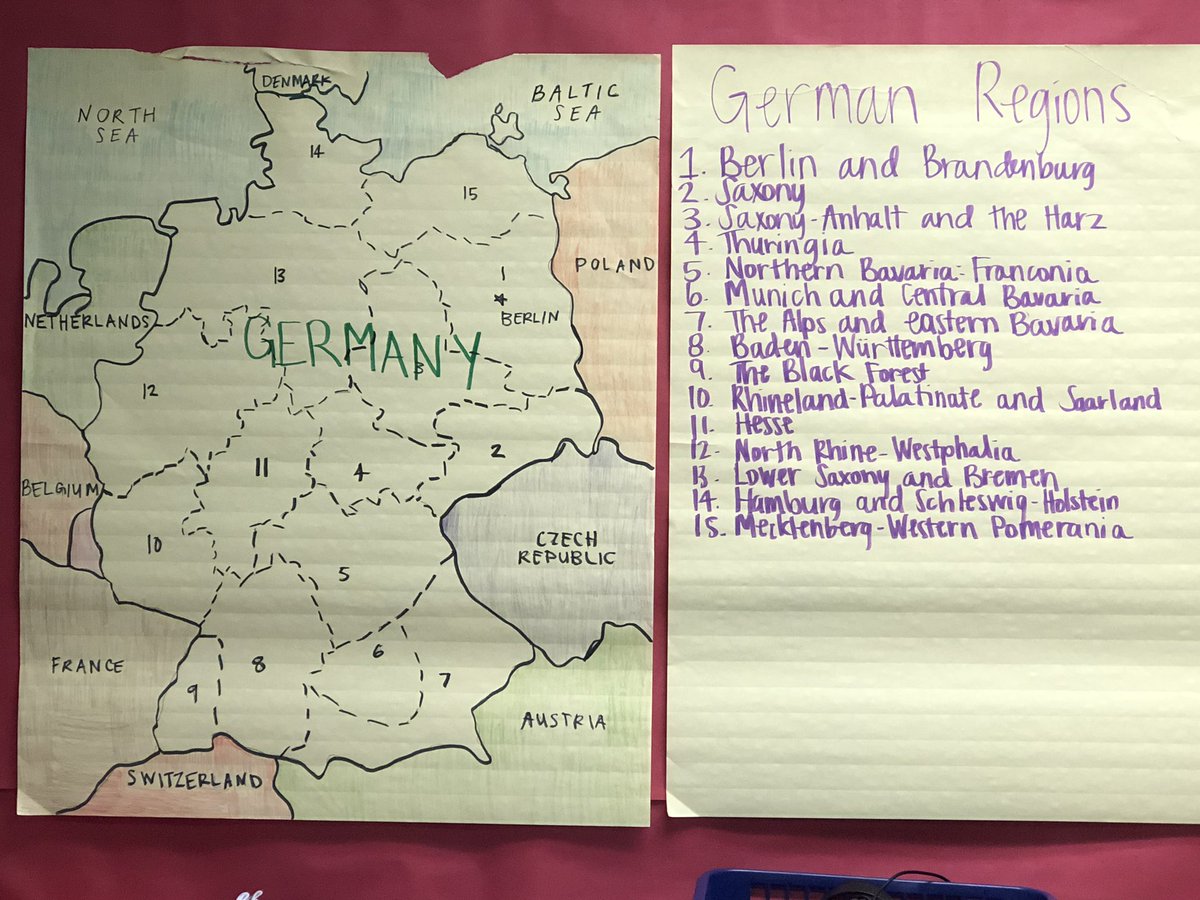 DENMARK
NORTH
SEA
BALTIC
SEA
14
15
13
1
POLAND
BERLIN
NETHERLANDS
GERMANY
3
12
2
11
4
BELGIUM
10
5
CZECH
REPUBLIC
FRANCE
8
6
7
9
AUSTRIA
SWITZERLAND
German Regions
1. Berlin and Brandenburg
2. Saxony
3. Saxony-Anhalt and the Harz
4. Thuringia
5. Northern Bavaria-Franconia
6. Munich and Central Bavaria
7. The Alps and eastern Bavaria
8. Baden-Württemberg
9. The Black Forest
10. Rhineland-Palatinate and Saarland
11. Hesse
12. North Rhine-Westphalia
13. Lower Saxony and Bremen
14. Hamburg and Schleswig-Holstein
15. Mecklenberg-Western Pomerania